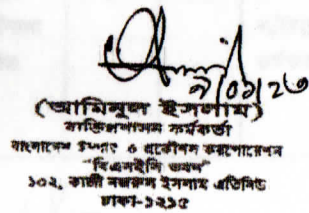 ৭/০১/২৬
(আমিনুল ইসলাম)
কর্মকর্তা
বাংলাদেশ ইস্পাত ও প্রকৌশল করপোরেশন
"বিএসইসি ভবন"
১০২, কাজী নজরুল ইসলাম এভিনিউ
ঢাকা-১২১৫